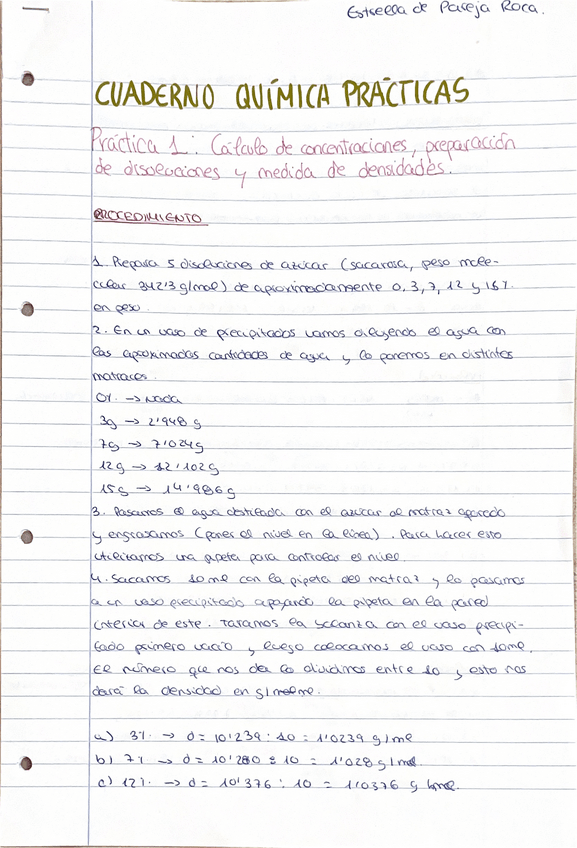 Estrella de Pareja Roca.
CUADERNO QUÍMICA PRÁCTICAS
Práctica 1: Cálculo de concentraciones, preparación
de disoluciones y medida de densidades.
PROCEDIMIENTO
1. Repara 5 disoluciones de azúcar (sacarosa, peso mole-
cular 342'3 g/mol) de aproximadamente 0, 3, 7, 12 y 15%
en peso.
2. En un vaso de precipitados vamos diluyendo el agua con
las aproximadas cantidades de agua y lo ponemos en distintos
matraces.
0% → Nada
3g → 2'948 g
7g → 7'024g
12g → 12'102g
15g → 14'986g
3. Pasamos el agua destilada con el azúcar al matraz aforado
y engrasamos (poner al nivel en la línea). Para hacer esto
utilizamos una pipeta para controlar el nivel.
4. Sacamos 10 ml con la pipeta del matraz y lo pasamos
a un vaso precipitado apoyando la pipeta en la pared
interior de este. Taramos la balanza con el vaso precipi-
tado primero vacío y luego colocamos el vaso con 10ml.
El número que nos da lo dividimos entre 10 y esto nos
dará la densidad en
a) 3% → d = 10'239 : 10 = 1'0239 g/ml
b) 7% → d = 10'280 : 10 = 1'028 g/ml.
c) 12% → d = 10'376 : 10 = 1'0376 g